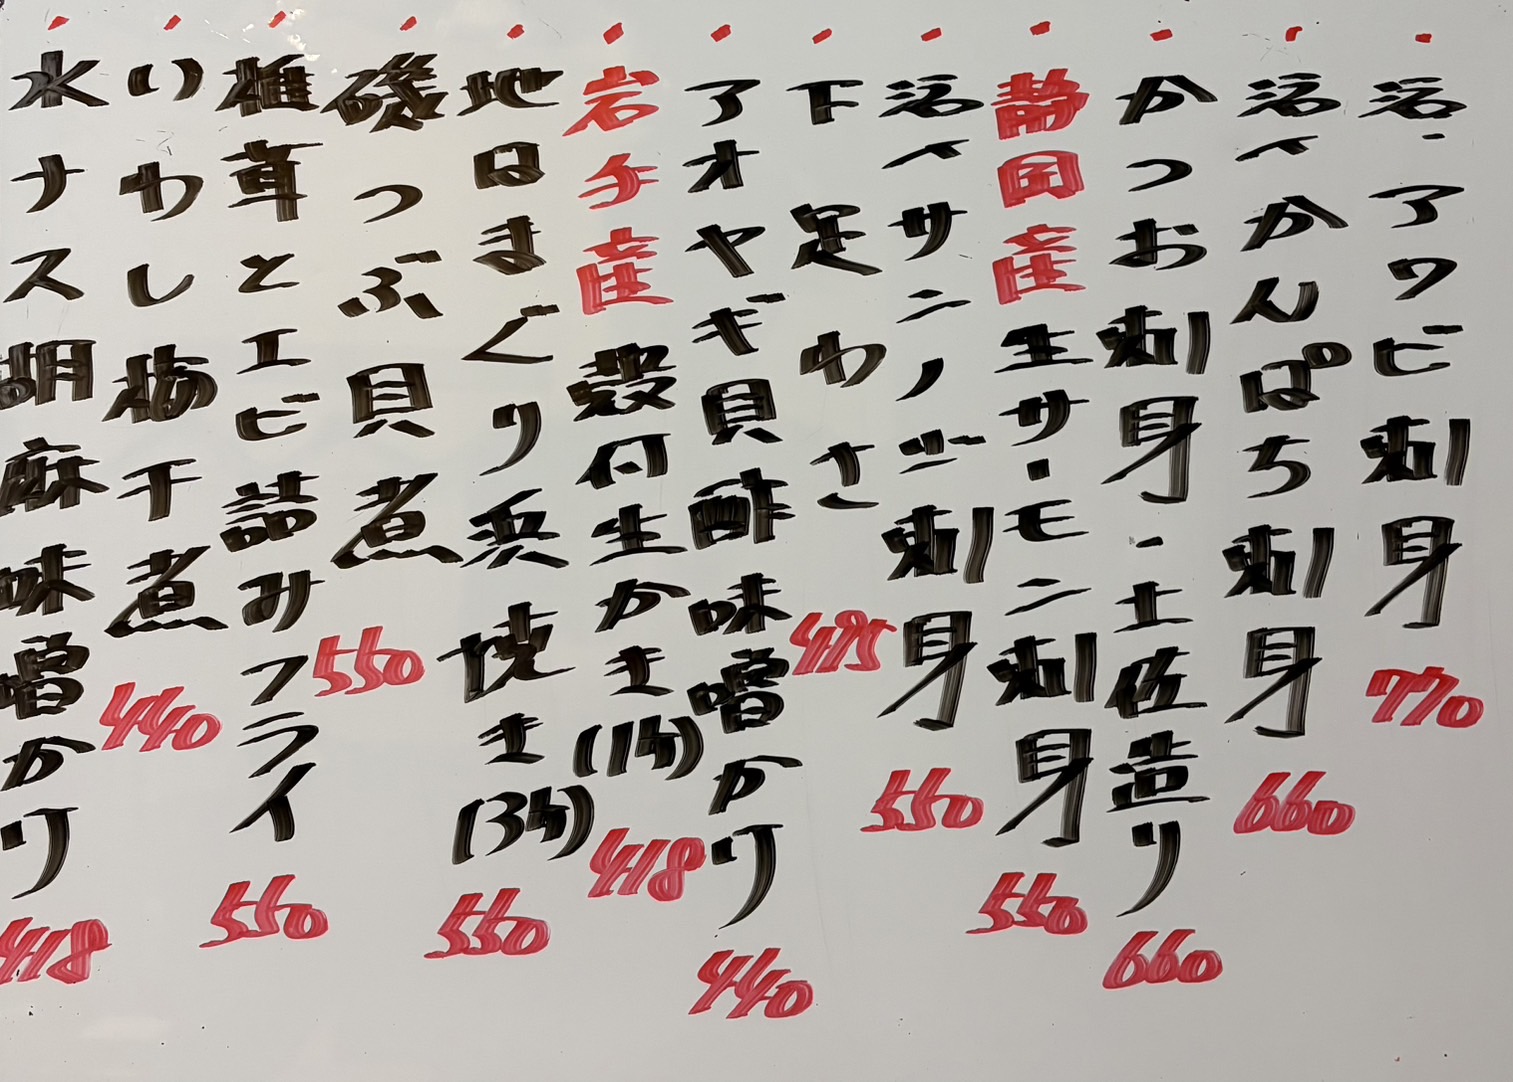 活・アワビ刺身 770
活〆かんぱち刺身 660
かつお刺身・土佐造り 660
静岡産生サーモン刺身 550
活〆サンノジ刺身 550
下足わさ 495
アオヤギ貝酢味噌かけ 440
岩手産殻付生かき(1ヶ) 418
地はまぐり浜焼き(3ヶ) 550
磯つぶ貝煮 550
椎茸とエビ詰みフライ 550
いわし梅干煮 440
水ナス胡麻味噌かけ 418